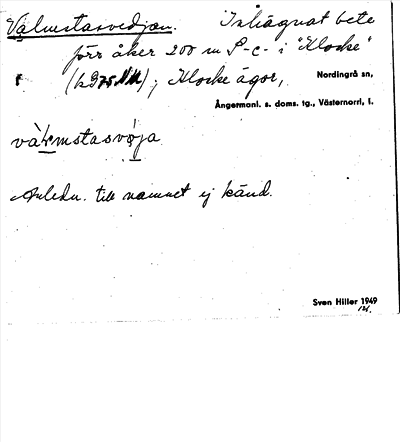 Valmstasvedjan. Inhägnat bete
förr åker 200 m S-c- i "Klocke"
; Klocke ägor, Nordingrå sn,
Ångermanl. s. doms. tg., Västernorrl, l.
Anledn. till namnet ej känd.
Sven Hiller 1949